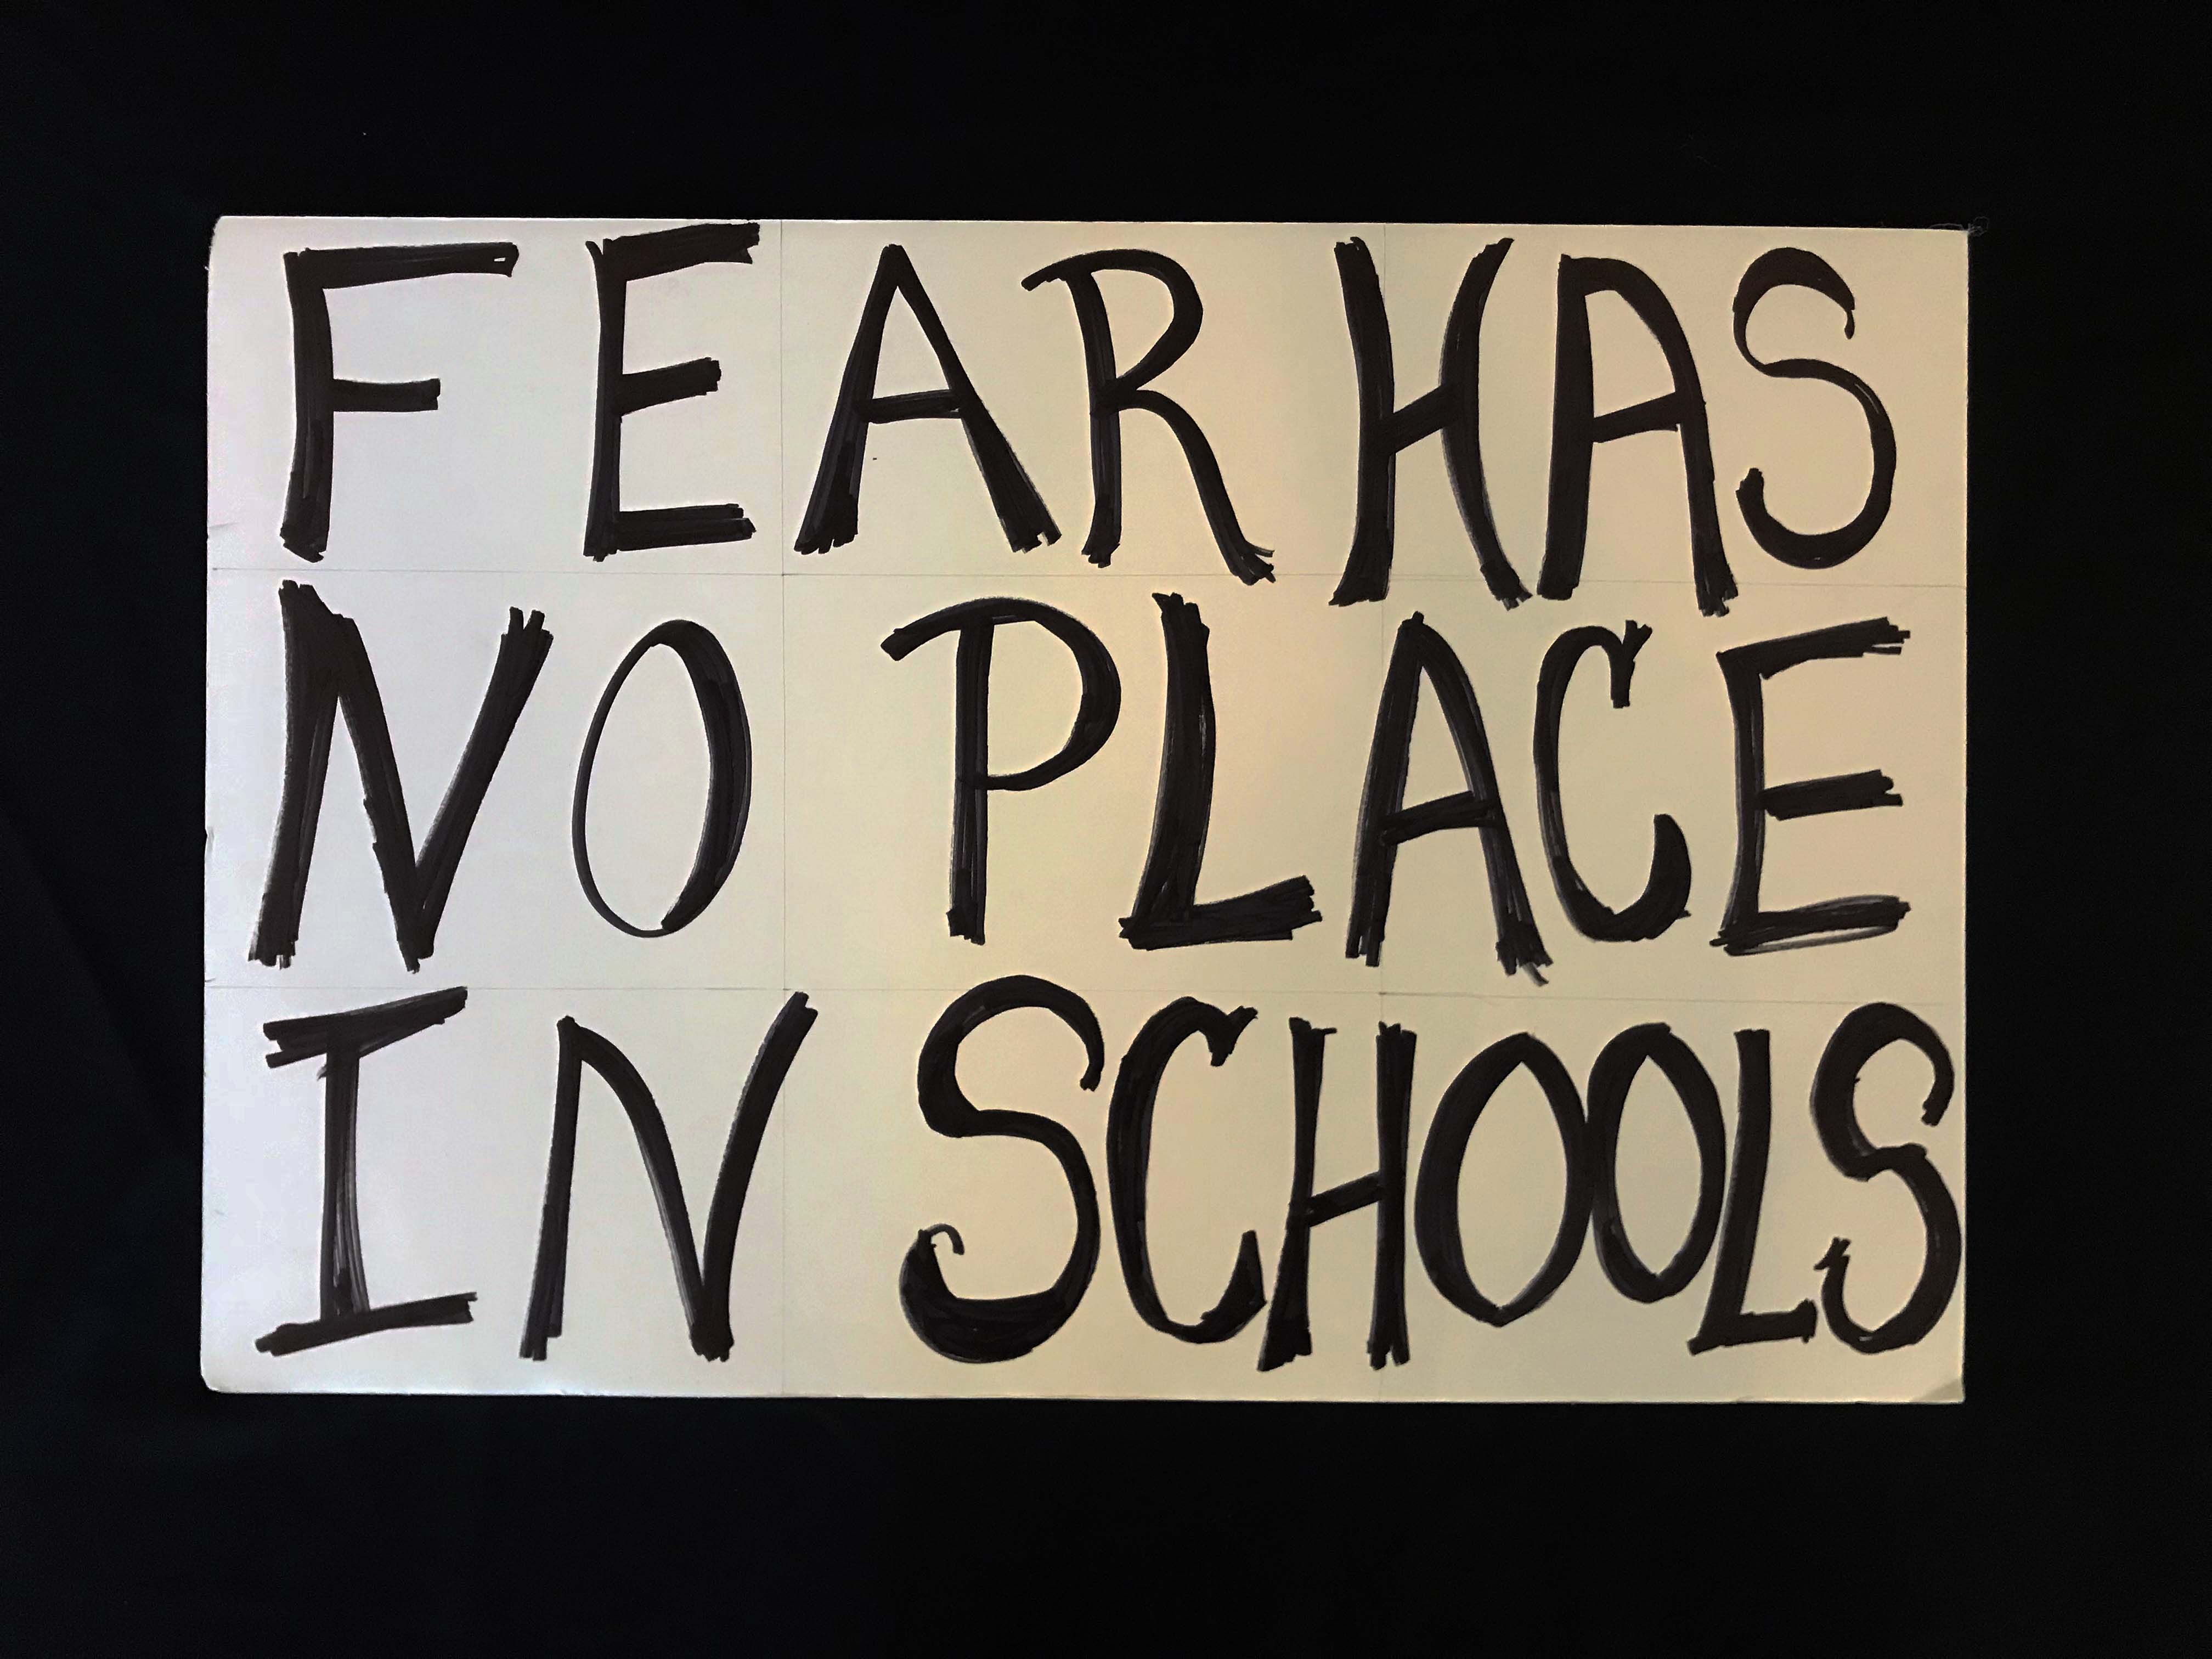 FEAR HAS
NO PLACE
IN SCHOOLS